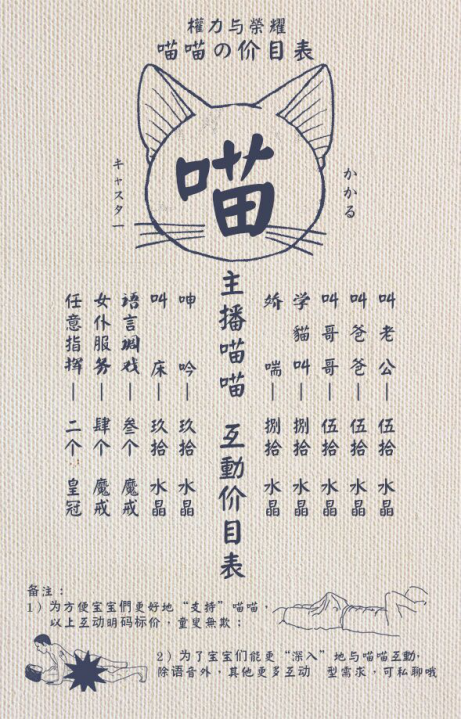 權力与榮耀
喵喵の价目表
喵
キャスター
かかる
主播喵喵 互動价目表
叫老公—伍拾 水晶
叫爸爸—伍拾 水晶
叫哥哥—伍拾 水晶
学貓叫—捌拾 水晶
娇喘—捌拾 水晶
呻吟—玖拾 水晶
叫床—玖拾 水晶
语言調戏—叁个 魔戒
女仆服务—肆个 魔戒
任意指揮—二个 皇冠
备注：
1）为方便宝宝們更好地“支持”喵喵，
以上互动明码标价，童叟無欺；
2）为了宝宝们能更“深入”地与喵喵互動，
除语音外，其他更多互动 型需求，可私聊哦